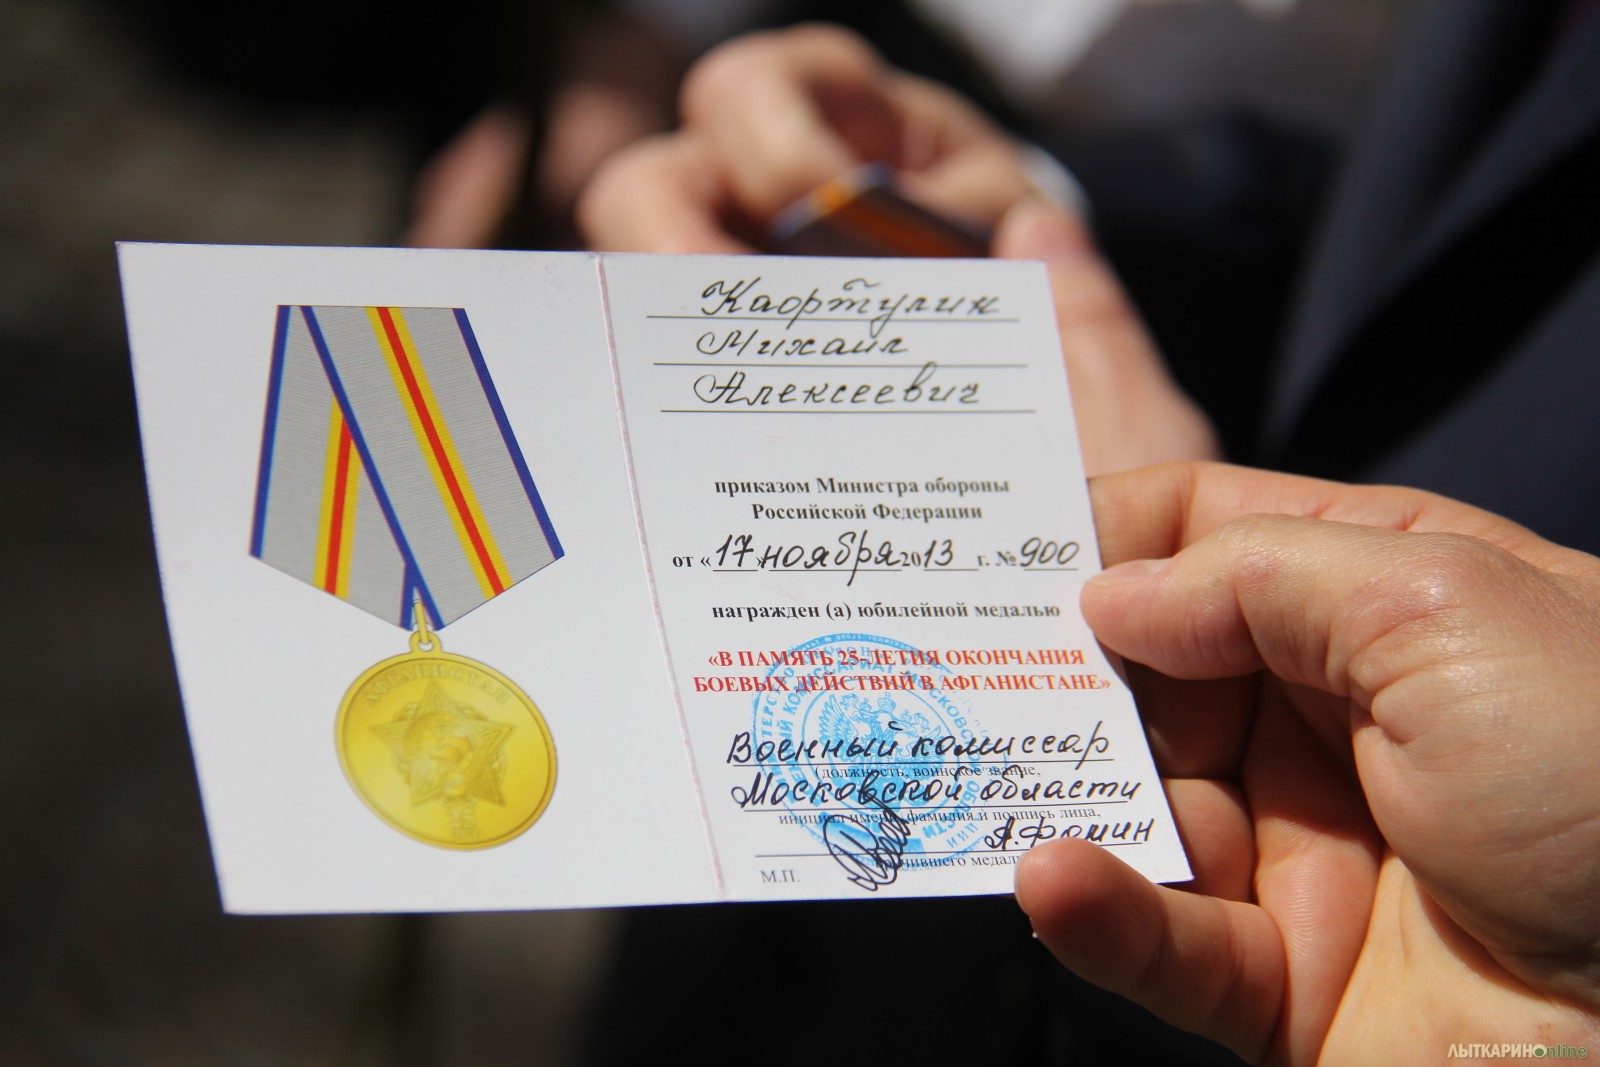 АФГАНИСТАН
Каортулин
Михаил
Алексеевич
приказом Министра обороны
Российской Федерации
от «17» ноября 2013 г. № 900
награжден (а) юбилейной медалью
«В ПАМЯТЬ 25-ЛЕТИЯ ОКОНЧАНИЯ
БОЕВЫХ ДЕЙСТВИЙ В АФГАНИСТАНЕ»
Военный комиссар
(должность, воинское звание,
Московской области
инициал имени, фамилия и подпись лица,
А. Фомин
вручившего медаль
М.П.
ЛЫТКАРИНОonline